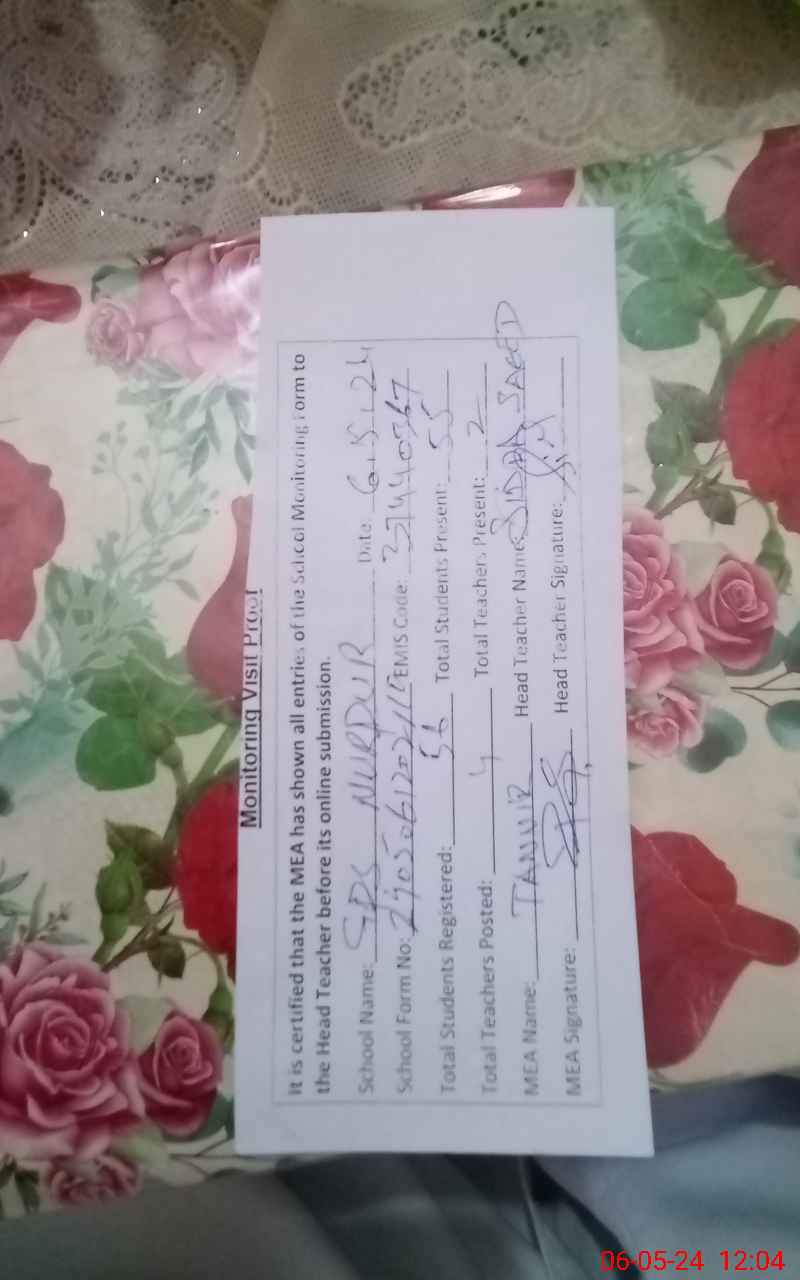 Monitoring Visit Proof
It is certified that the MEA has shown all entries of the School Monitoring Form to
the Head Teacher before its online submission.
School Name: GPS NURPUR Date: 6.5.24
School Form No: EMIS Code: 37440367
Total Students Registered: 56 Total Students Present: 55
Total Teachers Posted: 4 Total Teachers Present: 2
MEA Name: TANVIR Head Teacher Name: SAEED
MEA Signature: Head Teacher Signature:
06-05-24 12:04